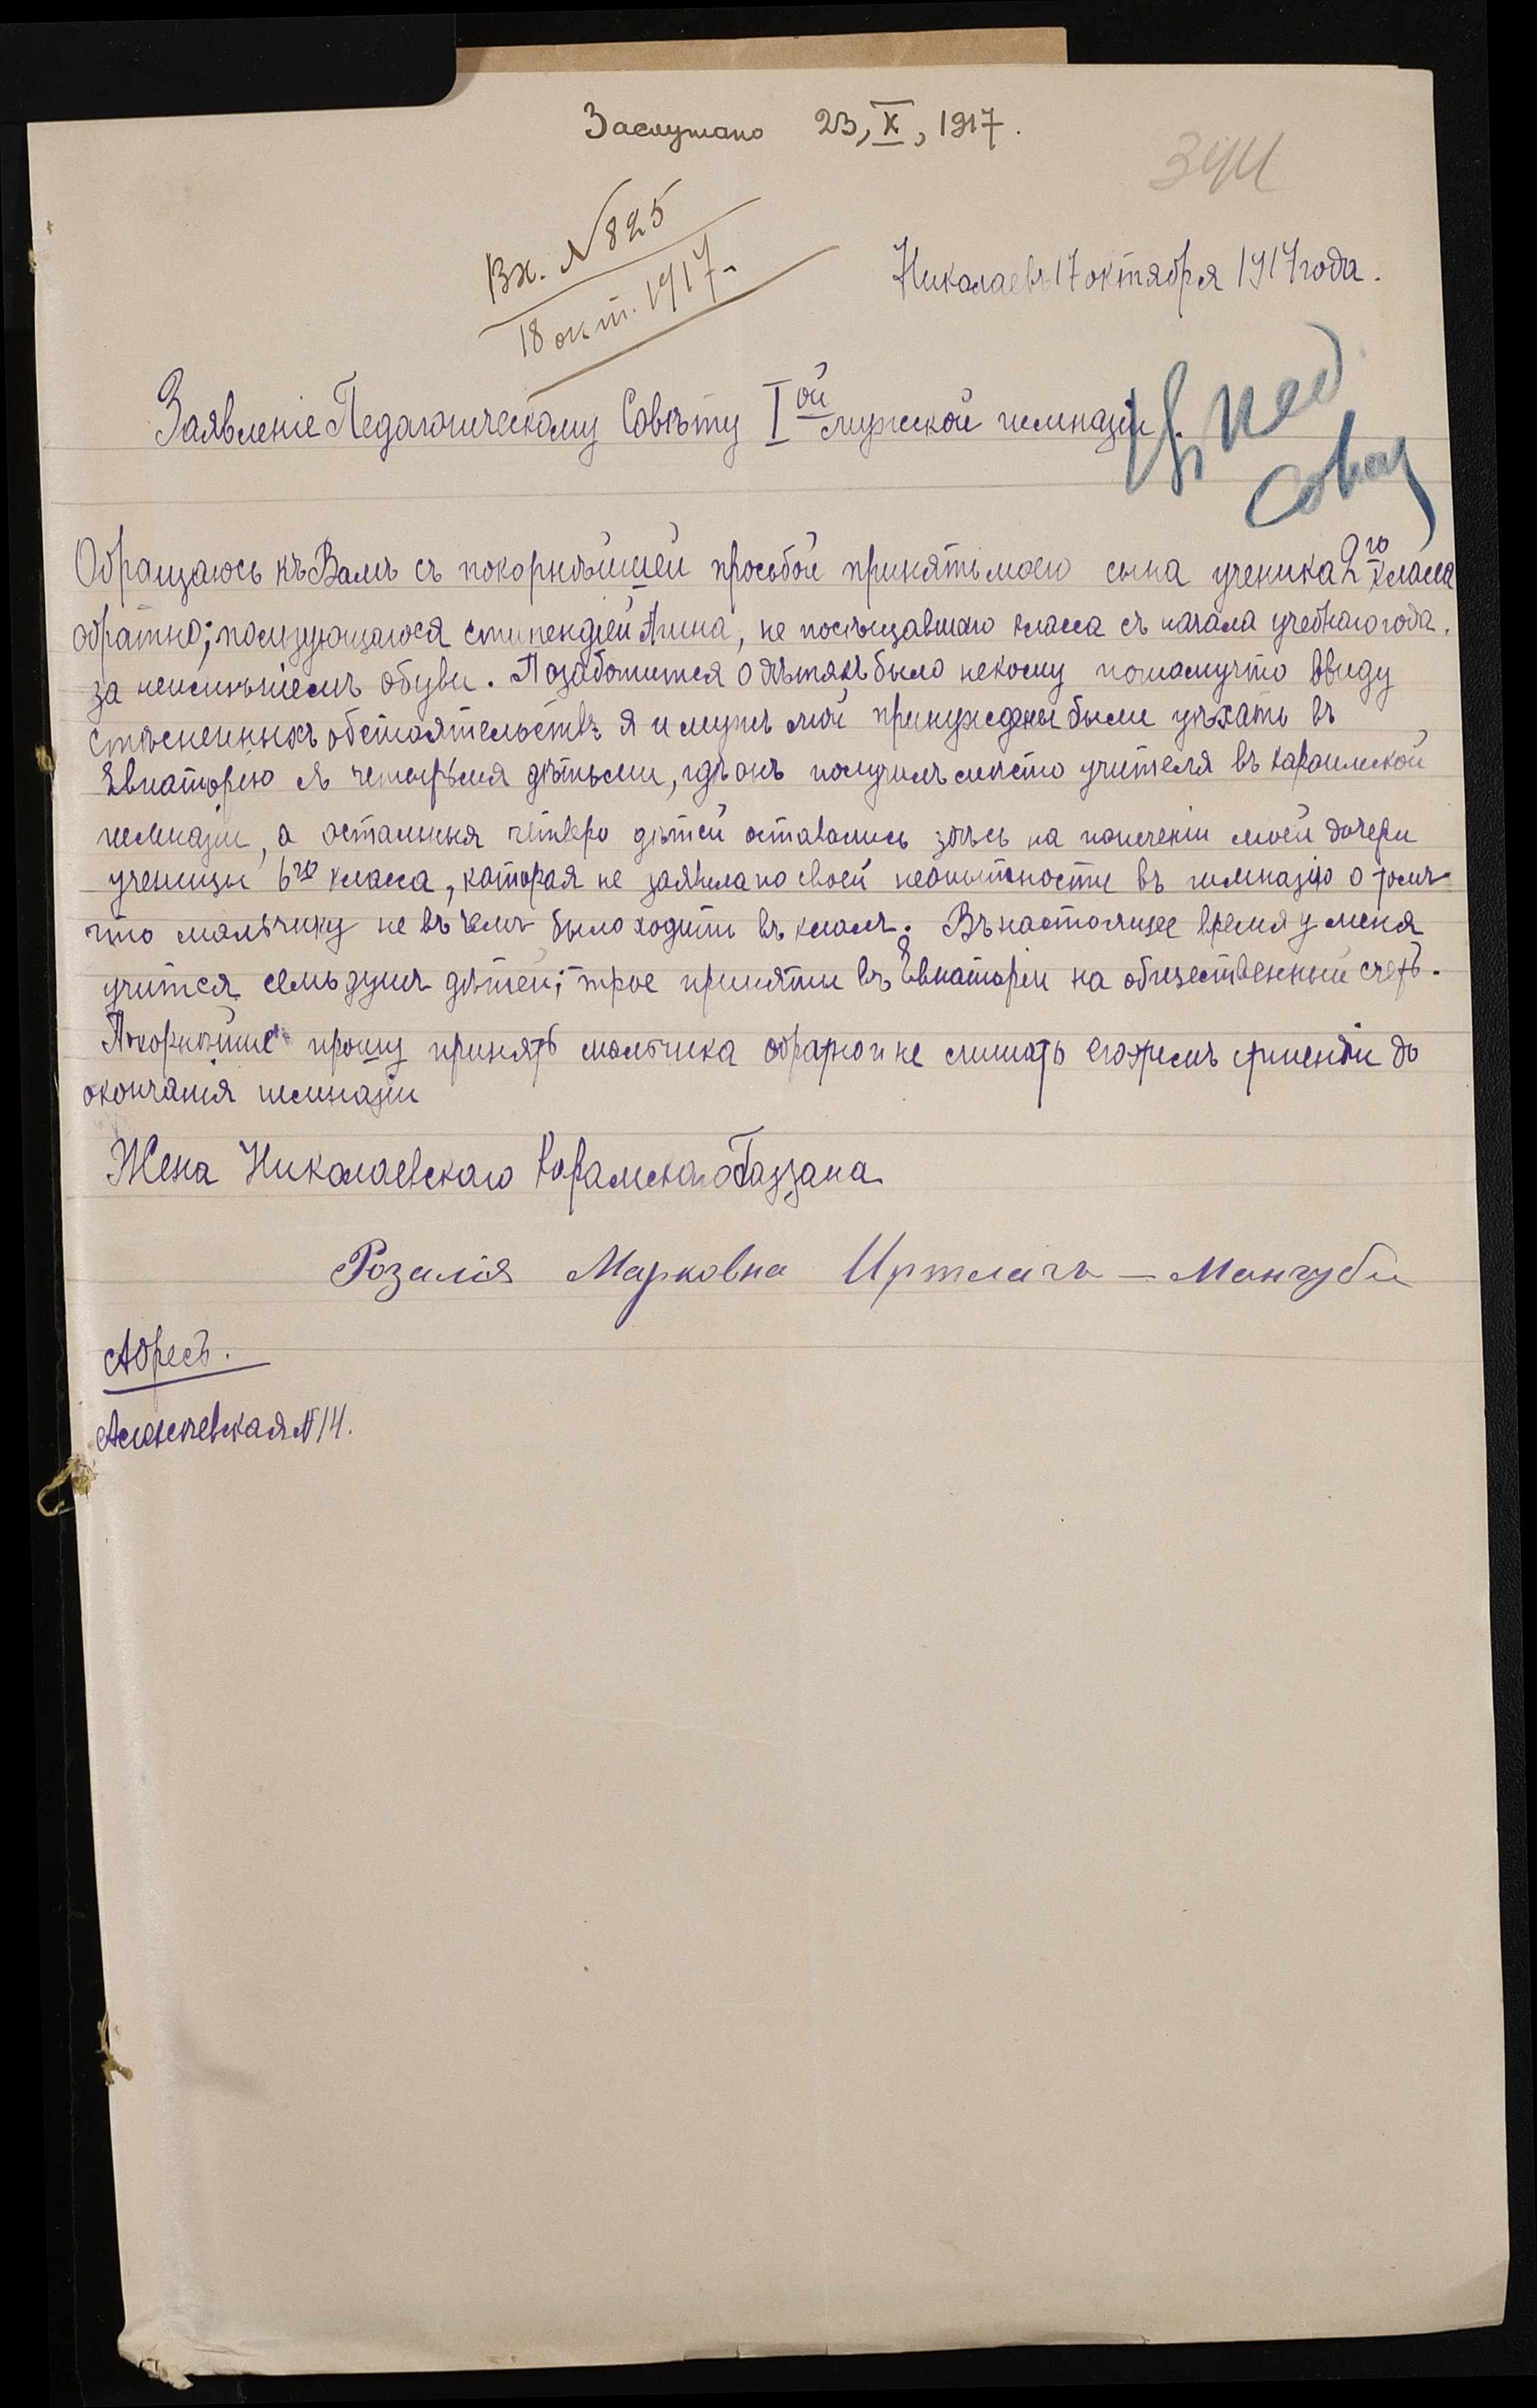 Заслушано 23, X, 1917.
344
Вх. №825
18 окт. 1917.
Николаевъ 17 октября 1917 года.
Заявленіе Педагогическому Совѣту I ой мужской гимназіи.
Въ пед.
Совѣт
Обращаюсь къ Вамъ съ покорнѣйшей просьбой принять моего сына ученика 2го класса
обратно; пользующагося стипендіей, не посѣщавшаго класса съ начала учебнаго года,
за неимѣніемъ обуви. Позаботится о дѣтяхъ было некому потомучто ввиду
стѣсненныхъ обстоятельствъ я и мужъ мой принуждены были уѣхать въ
Евпаторію съ четырьмя дѣтьми, гдѣ онъ получилъ мѣсто учителя въ караимской
гимназіи, а остальныя четверо дѣтей оставались здѣсь на попеченіи моей дочери
ученицы 6го класса, каторая не заявила по своей неопытности въ гимназію о томъ
что мальчику не въ чемъ было ходить въ классъ. Въ настоящее время у меня
учится семь душъ дѣтей; трое приняты въ Евпаторіи на общественный счетъ.
Покорнѣйше прошу принять мальчика обратно и не лишать его стипендіи до
окончанія гимназіи
Жена Николаевскаго Караимскаго Газзана
Розалія Марковна Иртлачъ – Мангуби
Адресъ.
№ 14.